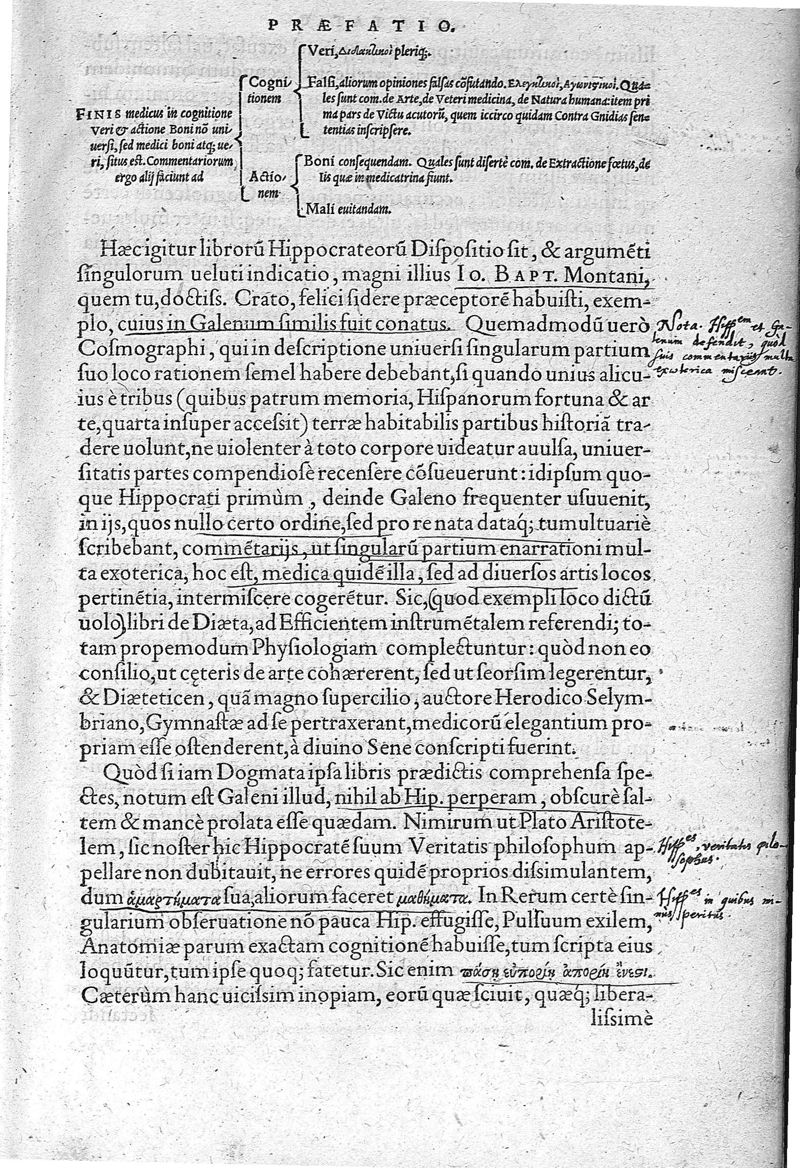 PRÆFATIO.
FINIS medicus in cognitione
Veri & actione Boni nō uni-
uersi, sed medici boni atq; ue-
ri, situs est. Commentariorum
ergo alij faciunt ad
Cogni-
tionem
Veri, Διδακτικοὶ pleriq;.
Falsi, aliorum opiniones falsas cōfutando. Ελεγκτικοὶ, Αγωνιστικοὶ. Qua-
les sunt com. de Arte, de Veteri medicina, de Natura humana: item pri
ma pars de Victu acutorū, quem iccirco quidam Contra Gnidias sen-
tentias inscripsere.
Actio-
nem
Boni consequendam. Quales sunt disertè com. de Extractione fœtus, de
Iis quæ in medicatrina fiunt.
Mali euitandam.
Hæc igitur librorū Hippocrateorū Dispositio sit, & argumēti
singulorum ueluti indicatio, magni illius IO. BAPT. Montani,
quem tu, doctiss. Crato, felici sidere præceptorē habuisti, exem-
plo, cuius in Galenum similis fuit conatus. Quemadmodū uerò
Cosmographi, qui in descriptione uniuersi singularum partium
suo loco rationem semel habere debebant, si quando unius alicu-
ius è tribus (quibus patrum memoria, Hispanorum fortuna & ar
te, quarta insuper accessit) terræ habitabilis partibus historiā tra-
dere uolunt, ne uiolenter à toto corpore uideatur auulsa, uniuer-
sitatis partes compendiosè recensere cōsueuerunt: idipsum quo-
que Hippocrati primùm, deinde Galeno frequenter usuuenit,
in ijs, quos nullo certo ordine, sed pro re nata dataq; tumultuariè
scribebant, commētarijs, ut singularū partium enarrationi mul-
ta exoterica, hoc est, medica quidē illa, sed ad diuersos artis locos
pertinētia, intermiscere cogerētur. Sic, (quod exempli loco dictū
uolo) libri de Diæta, ad Efficientem instrumētalem referendi; to-
tam propemodum Physiologiam complectuntur: quòd non eo
consilio, ut cęteris de arte cohærerent, sed ut seorsim legerentur,
& Diæteticen, quā magno supercilio, auctore Herodico Selym-
briano, Gymnastæ ad se pertraxerant, medicorū elegantium pro-
priam esse ostenderent, à diuino Sene conscripti fuerint.
Quòd si iam Dogmata ipsa libris prædictis comprehensa spe-
ctes, notum est Galeni illud, nihil ab Hip. perperam, obscurè sal-
tem & mancè prolata esse quædam. Nimirum ut Plato Aristote-
lem, sic noster hic Hippocratē suum Veritatis philosophum ap-
pellare non dubitauit, ne errores quidē proprios dissimulantem,
dum ἁμαρτήματα sua, aliorum faceret μαθήματα. In Rerum certè sin-
gularium obseruatione nō pauca Hip. effugisse, Pulsuum exilem,
Anatomiæ parum exactam cognitionē habuisse, tum scripta eius
loquūtur, tum ipse quoq; fatetur. Sic enim πάσῃ εὐπορίῃ ἀπορίη ἔνεσι.
Cæterùm hanc uicissim inopiam, eorū quæ sciuit, quæq; libera-
lissimè
Nota. Hipp^em et Ga-
lenum defendit, quod
suis commentariis multa
exoterica misceant.
Hipp^es, veritatis philo-
sophus.
Hipp^es in quibus mi-
nus peritus.